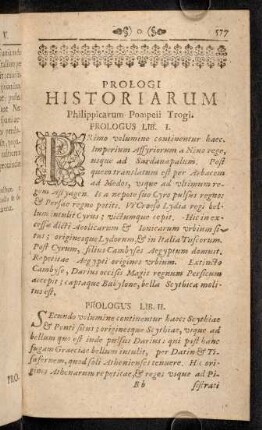 577
PROLOGI
HISTORIARUM
Philippicarum Pompeii Trogi.
PROLOGUS LIB. I.
PRimo volumine continentur haec.
Imperium Assyriorum a Nino rege,
usque ad Sardanapalum. Post
quem translatum est per Arbacem
ad Medos, usque ad ultimum re-
gem Astyagem. Is a nepote suo Cyro pulsus regno:
& Persae regno potiti. Ut Croeso Lydiae regi bel-
lum intulit Cyrus; victumque cepit. Hic in ex-
cessu dicti Aeolicarum & Ionicarum urbium si-
tus; originesque Lydorum, & in Italia Tuscorum.
Post Cyrum, filius Cambyses Aegyptum domuit.
Repetitae Aegypti origines urbium. Extincto
Cambyse, Darius occisis Magis regnum Persicum
accepit; captaque Babylone, bella Scythica molitus est.
PROLOGUS LIB. II.
SEcundo volumine continentur haec: Scythiae
& Ponti situs; originesque Scythiae, usque ad
bellum quo est inde pulsus Darius: qui post hanc
fugam Graeciae bellum intulit, per Datin & Ti-
safernem, quod soli Athenienses tenuere. Hic ori-
gines Athenarum repetitae, & reges usque ad Pi-
Bb
sistrati
PRO.